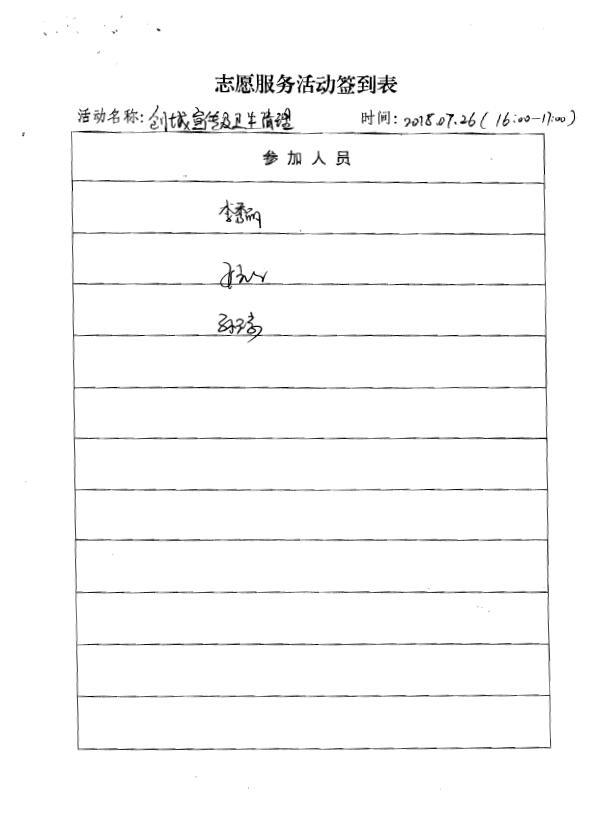 志愿服务活动签到表
活动名称：创城宣传及卫生清理 时间：2018.07.26（16:00-17:00）
参加人员
李秀丽